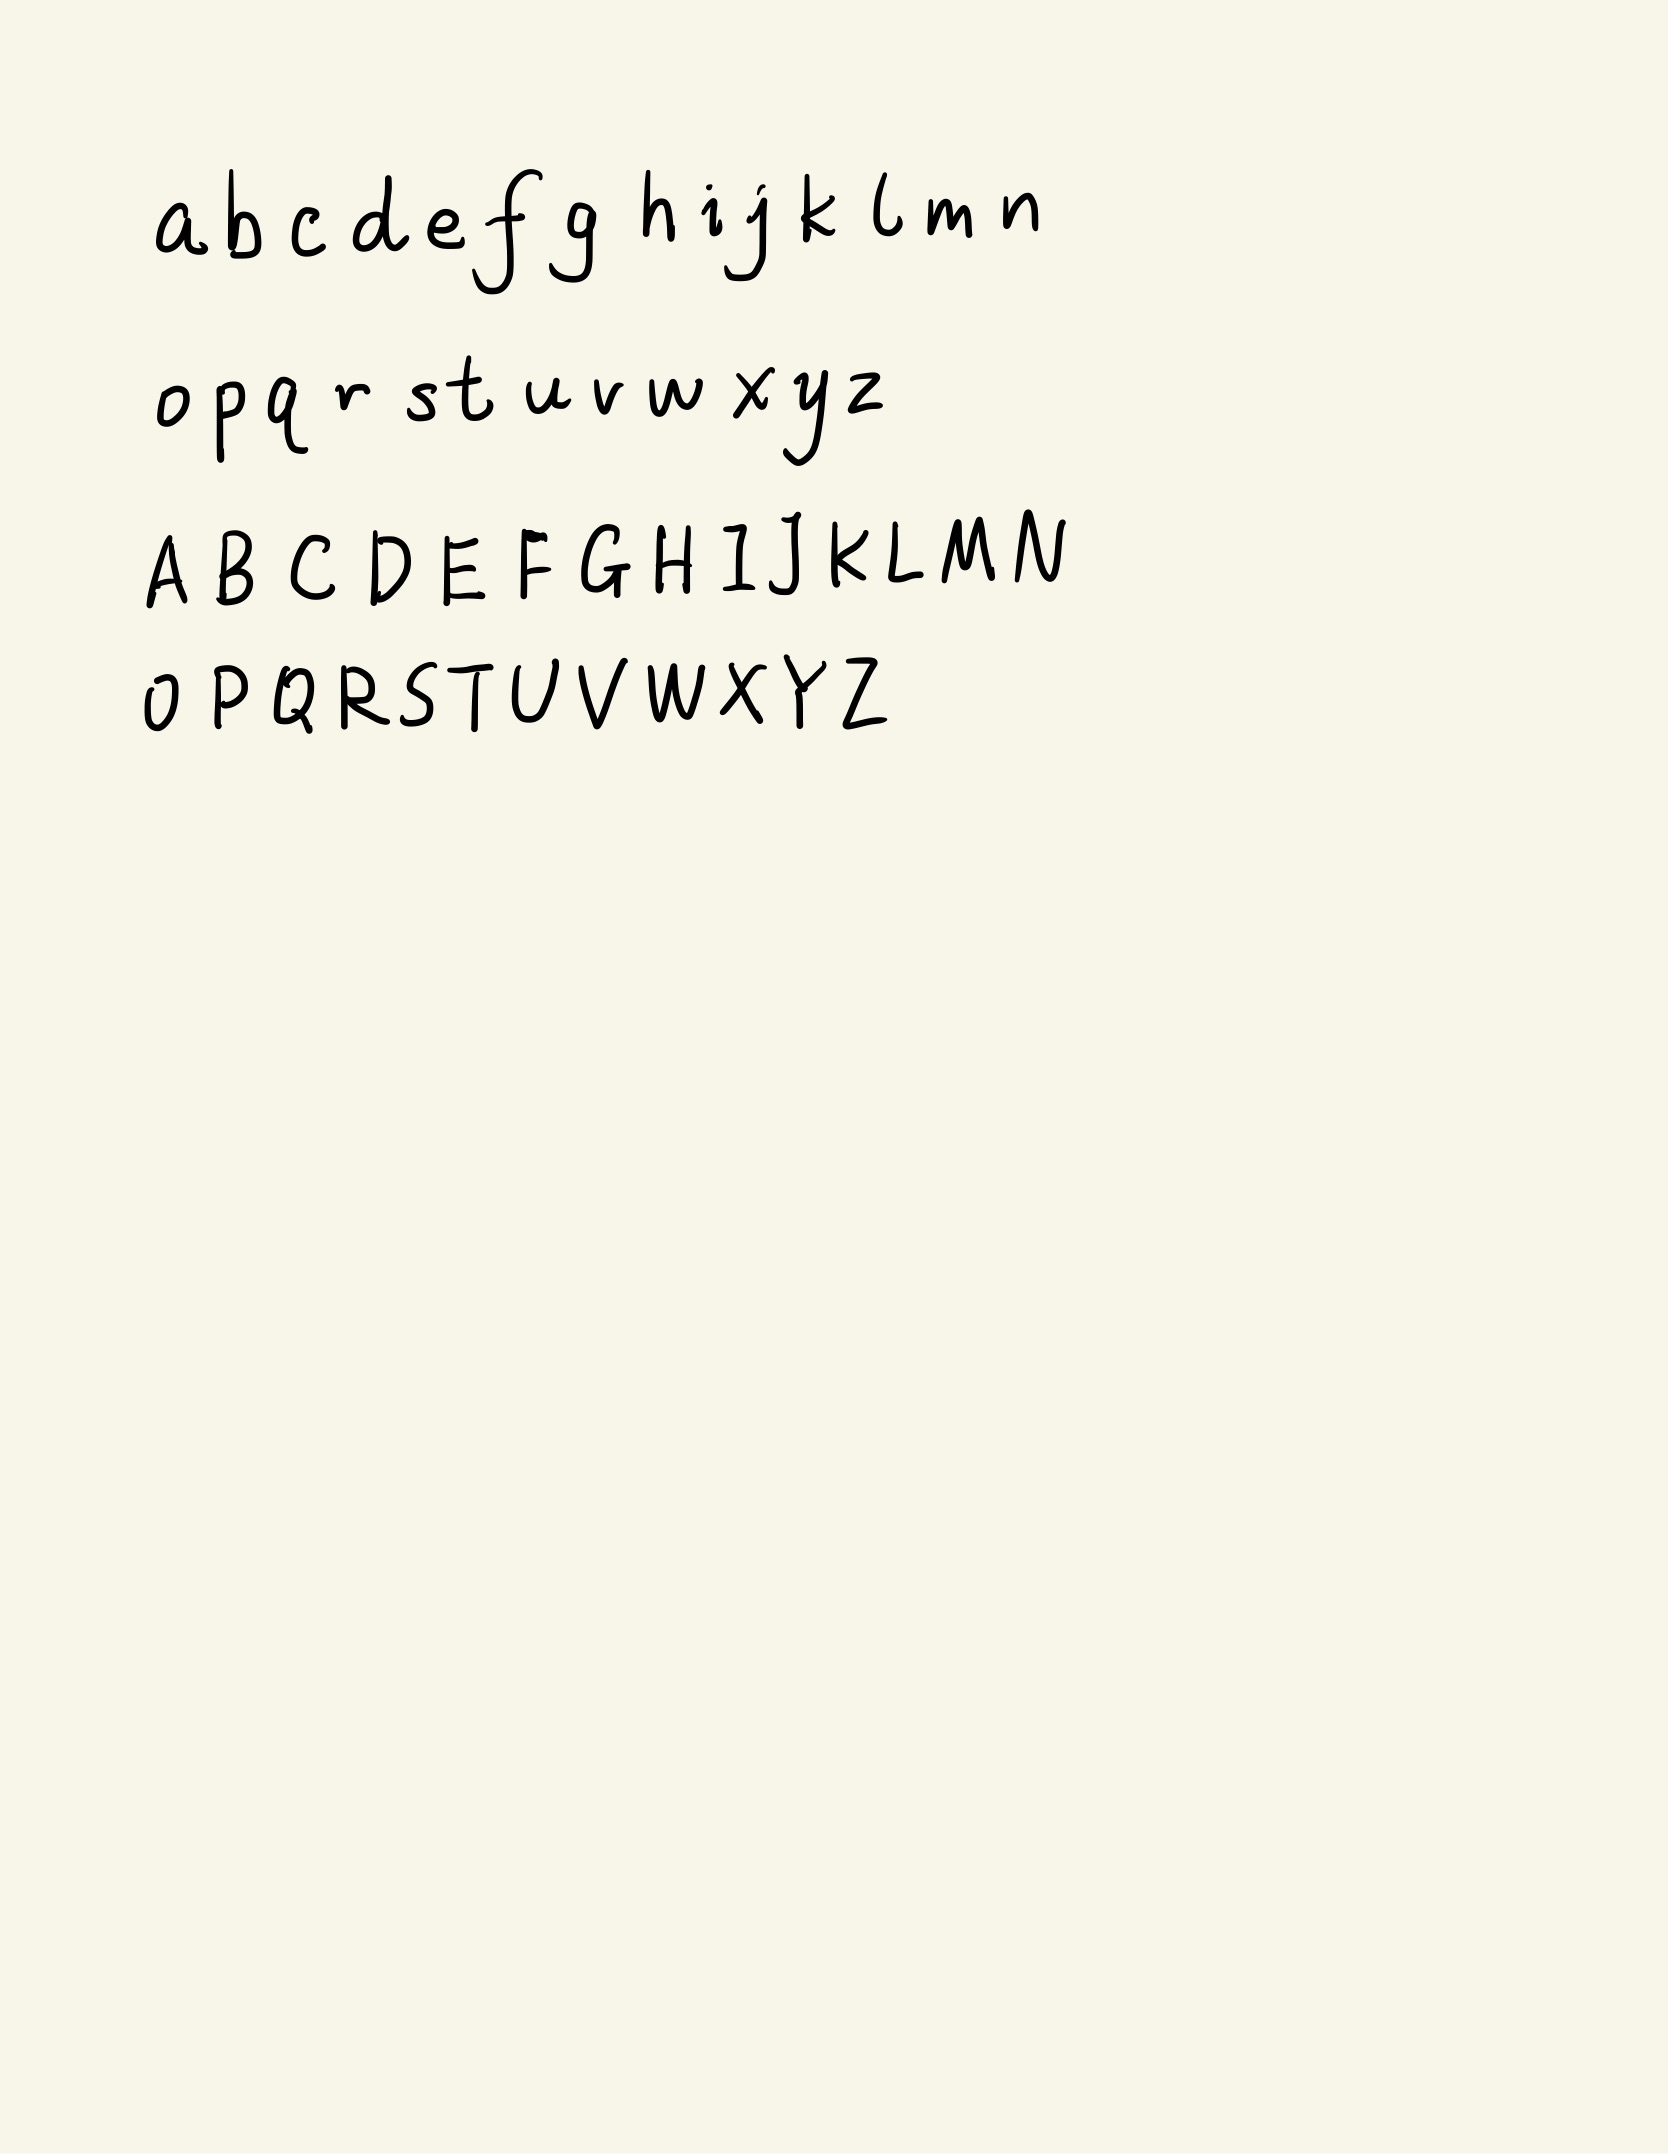 a b c d e f g h i j k l m n
o p q r s t u v w x y z
A B C D E F G H I J K L M N
O P Q R S T U V W X Y Z